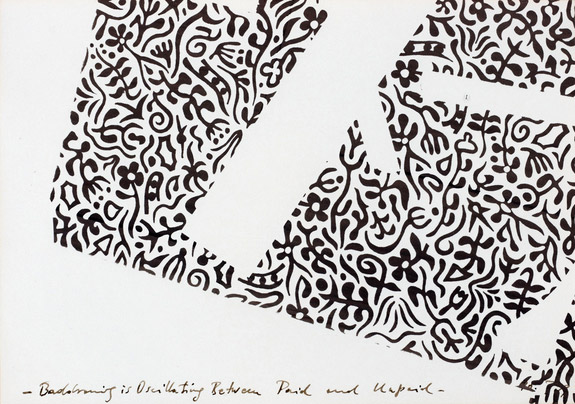 – is Oscillating Between Paid and Unpaid –